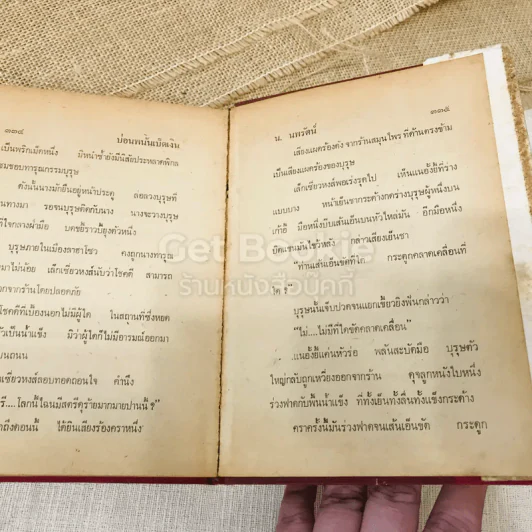 ๓๓๔ บ่อนพนันเบ็ดเงิน
เป็นพริกเม็ดหนึ่ง มิหนำซ้ำยังมีนิสัยประหลาดพิกล
ชมชอบทารุณกรรมบุรุษ
ดังนั้นนางมักยืนอยู่หน้าประตู ลอยลวงบุรุษที่
นทางมา รอจนบุรุษติดกับนาง นางจะวางบุรุษ
บดขยี้ราวบี้ยุงตัวหนึ่ง
บุรุษภายในเมืองลาฮาโซว คงถูกนางทารุณ
มาไม่น้อย เล็กเซี่ยวหงส์นับว่าโชคดี สามารถ
จากร้านโดยปลอดภัย
โชคดีที่เบื้องนอกไม่มีผู้ใด ในสถานที่ซึ่งหยด
เป็นน้ำแข็ง มิว่าผู้ใดก็ไม่มีอารมณ์ออกมา
บนถนน
เซี่ยวหงส์ลอบทอดถอนใจ คำนึง
....โลกนี้ไฉนมีสตรีดุร้ายมากมายปานนี้ ?"
ถึงตอนนี้ ได้ยินเสียงร้องคราหนึ่ง
น. นพรัตน์ ๓๓๕
เสียงแผดร้องดัง จากร้านสมุนไพรที่ด้านตรงข้าม
เป็นเสียงแผดร้องของบุรุษ
เล็กเซี่ยวหงส์พอเร่งรุดไป เห็นแนอั้งยี้ที่ร่าง
แบบบาง หน้าเย็นชากระด้างกดร่างบุรุษผู้หนึ่งบน
เก้าอี้ มือหนึ่งบิดเส้นเอ็นบนหัวไหล่มัน อีกมือหนึ่ง
บิดแขนมันไขว้หลัง กล่าวเสียงเย็นชา
"ท่านเส้นเอ็นขัดที่ใด กระดูกคลาดเคลื่อนที่
ใด ?"
บุรุษนั้นเจ็บปวดจนแยกเขี้ยวยิงฟันกล่าวว่า
"ไม่....ไม่มีที่ใดขัดคลาดเคลื่อน"
แนอั้งยี้แค่นหัวร่อ พลันสะบัดมือ บุรุษตัว
ใหญ่กลับถูกเหวี่ยงออกจากร้าน ดุจลูกหนังใบหนึ่ง
ร่วงฟาดกับพื้นน้ำแข็ง ที่ทั้งเย็นทั้งลื่นทั้งแข็งกระด้าง
คราครั้งนี้มันร่วงฟาดจนเส้นเอ็นขัด กระดูก
Get Bookie
ร้านหนังสือบุ๊คกี้